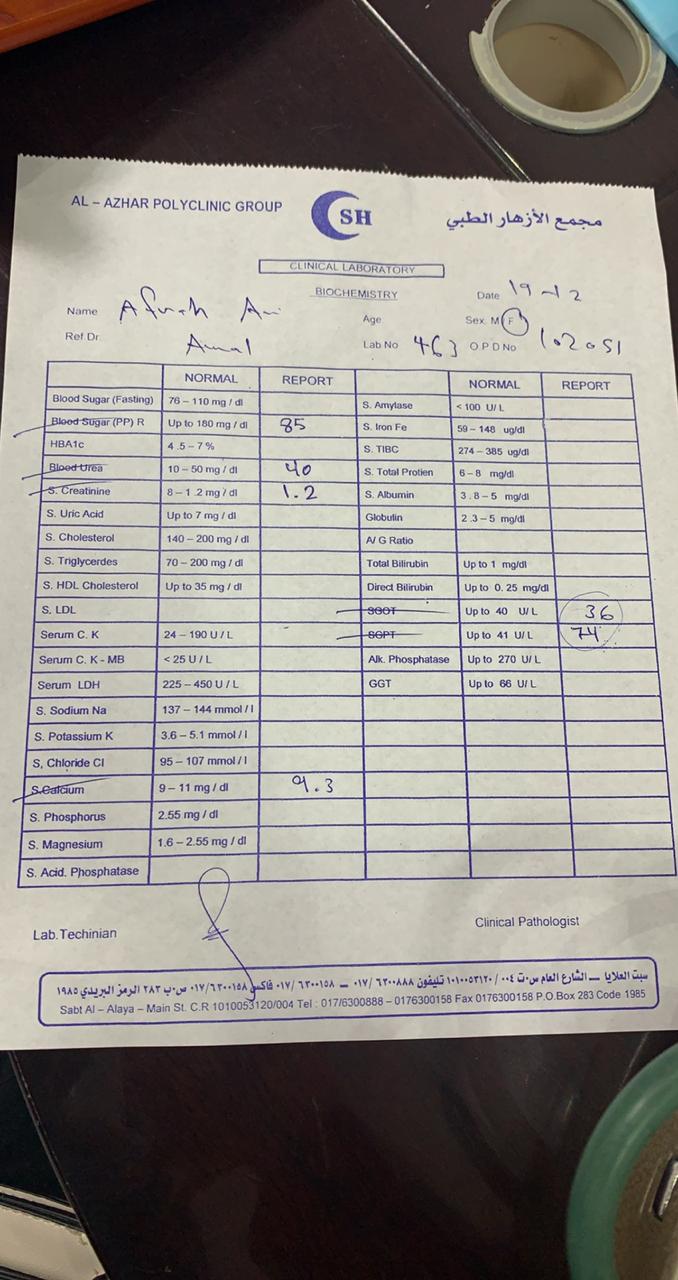 AL – AZHAR POLYCLINIC GROUP
SH
مجمع الأزهار الطبي
CLINICAL LABORATORY
BIOCHEMISTRY
Date 19-12
Name Afrah
Age
Sex. M F
Ref.Dr. Amal
Lab No 463 O P D No 102051
NORMAL REPORT NORMAL REPORT
Blood Sugar (Fasting) 76 – 110 mg / dl S. Amylase < 100 U/ L
Blood Sugar (PP) R Up to 180 mg / dl 85 S. Iron Fe 59 – 148 ug/dl
HBA1c 4.5 – 7 % S. TIBC 274 – 385 ug/dl
Blood Urea 10 – 50 mg / dl 40 S. Total Protien 6 – 8 mg/dl
S. Creatinine 8 – 1 .2 mg / dl 1.2 S. Albumin 3.8 – 5 mg/dl
S. Uric Acid Up to 7 mg / dl Globulin 2.3 – 5 mg/dl
S. Cholesterol 140 – 200 mg / dl A/ G Ratio
S. Triglycerdes 70 – 200 mg / dl Total Bilirubin Up to 1 mg/dl
S. HDL Cholesterol Up to 35 mg / dl Direct Bilirubin Up to 0. 25 mg/dl
S. LDL SGOT Up to 40 U/ L 36
Serum C. K 24 – 190 U / L SGPT Up to 41 U/ L 74
Serum C. K - MB < 25 U / L Alk. Phosphatase Up to 270 U/ L
Serum LDH 225 – 450 U / L GGT Up to 66 U/ L
S. Sodium Na 137 – 144 mmol / l
S. Potassium K 3.6 – 5.1 mmol / l
S, Chloride Cl 95 – 107 mmol / l
S.Calcium 9 – 11 mg / dl 9.3
S. Phosphorus 2.55 mg / dl
S. Magnesium 1.6 – 2.55 mg / dl
S. Acid. Phosphatase
Lab.Techinian
Clinical Pathologist
سبت العلايا – الشارع العام س.ت ٠٠٤ / ١٠١٠٠٥٣١٢٠ تليفون ٦٣٠٠٨٨٨ /٠١٧ – ٦٣٠٠١٥٨ /٠١٧ فاكس ٦٣٠٠١٥٨ /٠١٧ ص.ب ٢٨٣ الرمز البريدي ١٩٨٥
Sabt Al – Alaya – Main St. C.R 1010053120/004 Tel : 017/6300888 – 0176300158 Fax 0176300158 P.O.Box 283 Code 1985